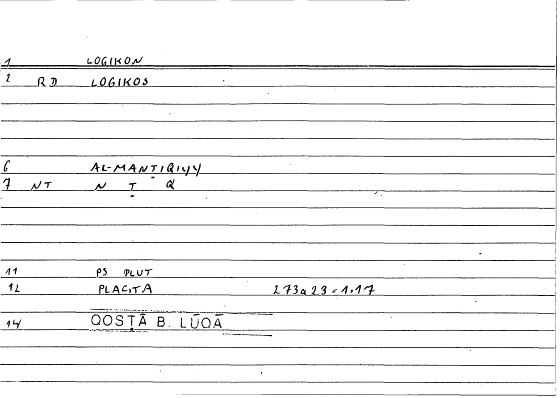 1 LOGIKON
2 RD LOGIKOS
6 AL-MANṬIQIYY
7 NT N Ṭ Q
11 PS PLUT
12 PLACITA 273a23=1.17
14 QOSṬĀ B. LŪQĀ